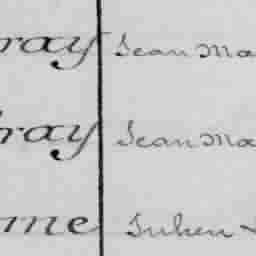 ray Jean Ma
ray Jean Ma
me Julien